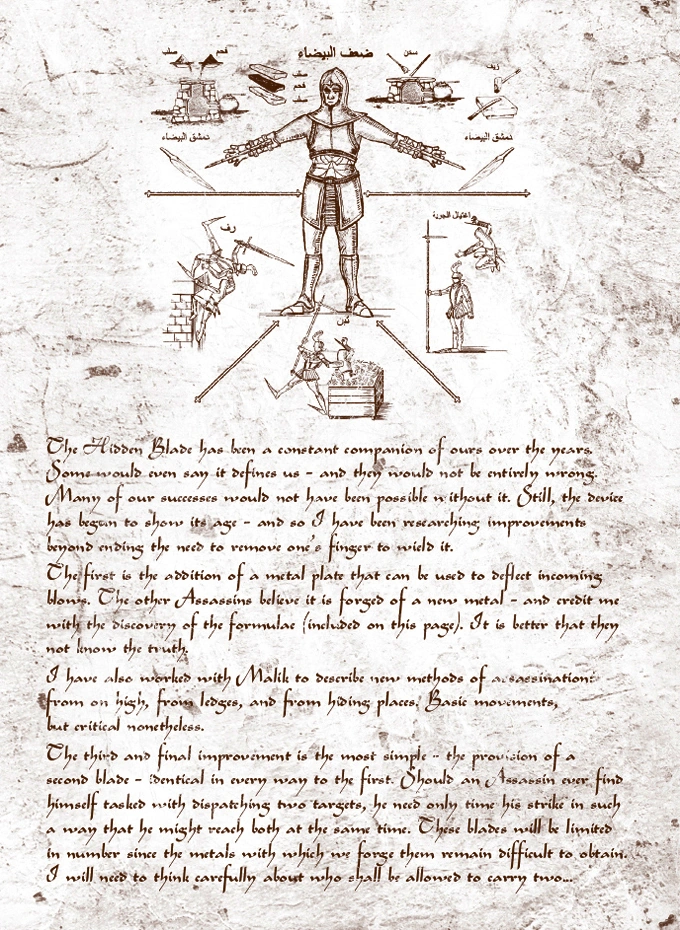 ضعف البيضاء
صلب
فحم
صلب
فحم
صلب
سخن
زيف
دمشق البيضاء
دمشق البيضاء
رف
اغتيال الجررة
The Hidden Blade has been a constant companion of ours over the years.
Some would even say it defines us - and they would not be entirely wrong.
Many of our successes would not have been possible without it. Still, the device
has begun to show its age - and so I have been researching improvements
beyond ending the need to remove one's finger to wield it.
The first is the addition of a metal plate that can be used to deflect incoming
blows. The other Assassins believe it is forged of a new metal - and credit me
with the discovery of the formulae (included on this page). It is better that they
not know the truth.
I have also worked with Malik to describe new methods of assassination:
from on high, from ledges, and from hiding places. Basic movements,
but critical nonetheless.
The third and final improvement is the most simple - the provision of a
second blade - identical in every way to the first. Should an Assassin ever find
himself tasked with dispatching two targets, he need only time his strike in such
a way that he might reach both at the same time. These blades will be limited
in number since the metals with which we forge them remain difficult to obtain.
I will need to think carefully about who shall be allowed to carry two...